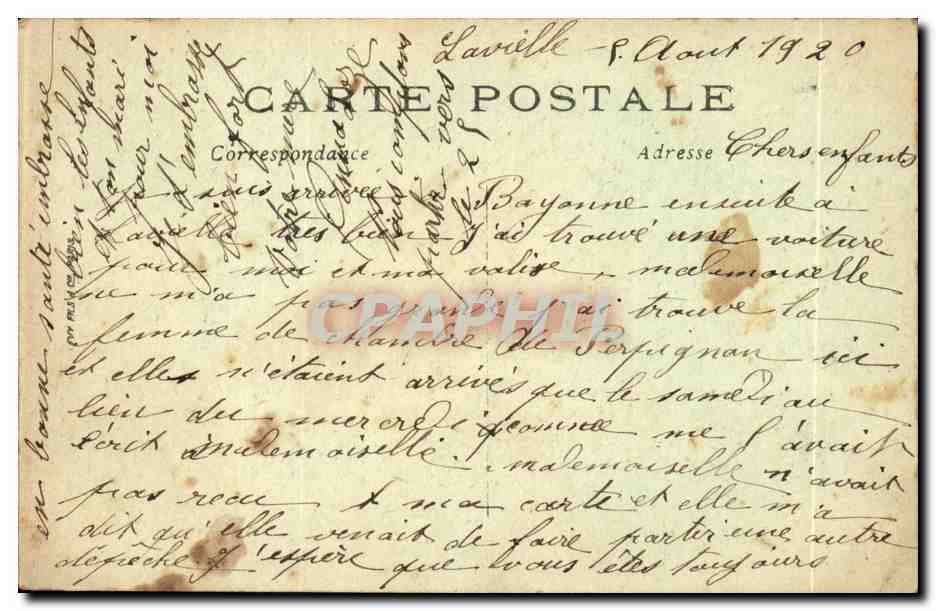 Lavielle 8 Aout 1920
CARTE POSTALE
Correspondance
Adresse
Chers enfants
Je suis arrivée Bayonne ensuite à
Lavielle très bien j'ai trouvé une voiture
pour moi et ma valise, mademoiselle
ne m'a pas j'ai trouvé la
femme de chambre de Perpignan ici
et elles n'étaient arrivés que le samedi au
lieu du mercredi comme me l'avait
écrit mademoiselle. mademoiselle n'avait
pas recu ma carte et elle m'a
dit qu'elle venait de faire partir une autre
dépêche J'espère que vous êtes toujours
en bonne santé embrasse
bien les enfants
et ton mari
pour moi
Je t'embrasse
bien fort
votre mère
nous comptons
partir vers
le 25
CPAPHIL